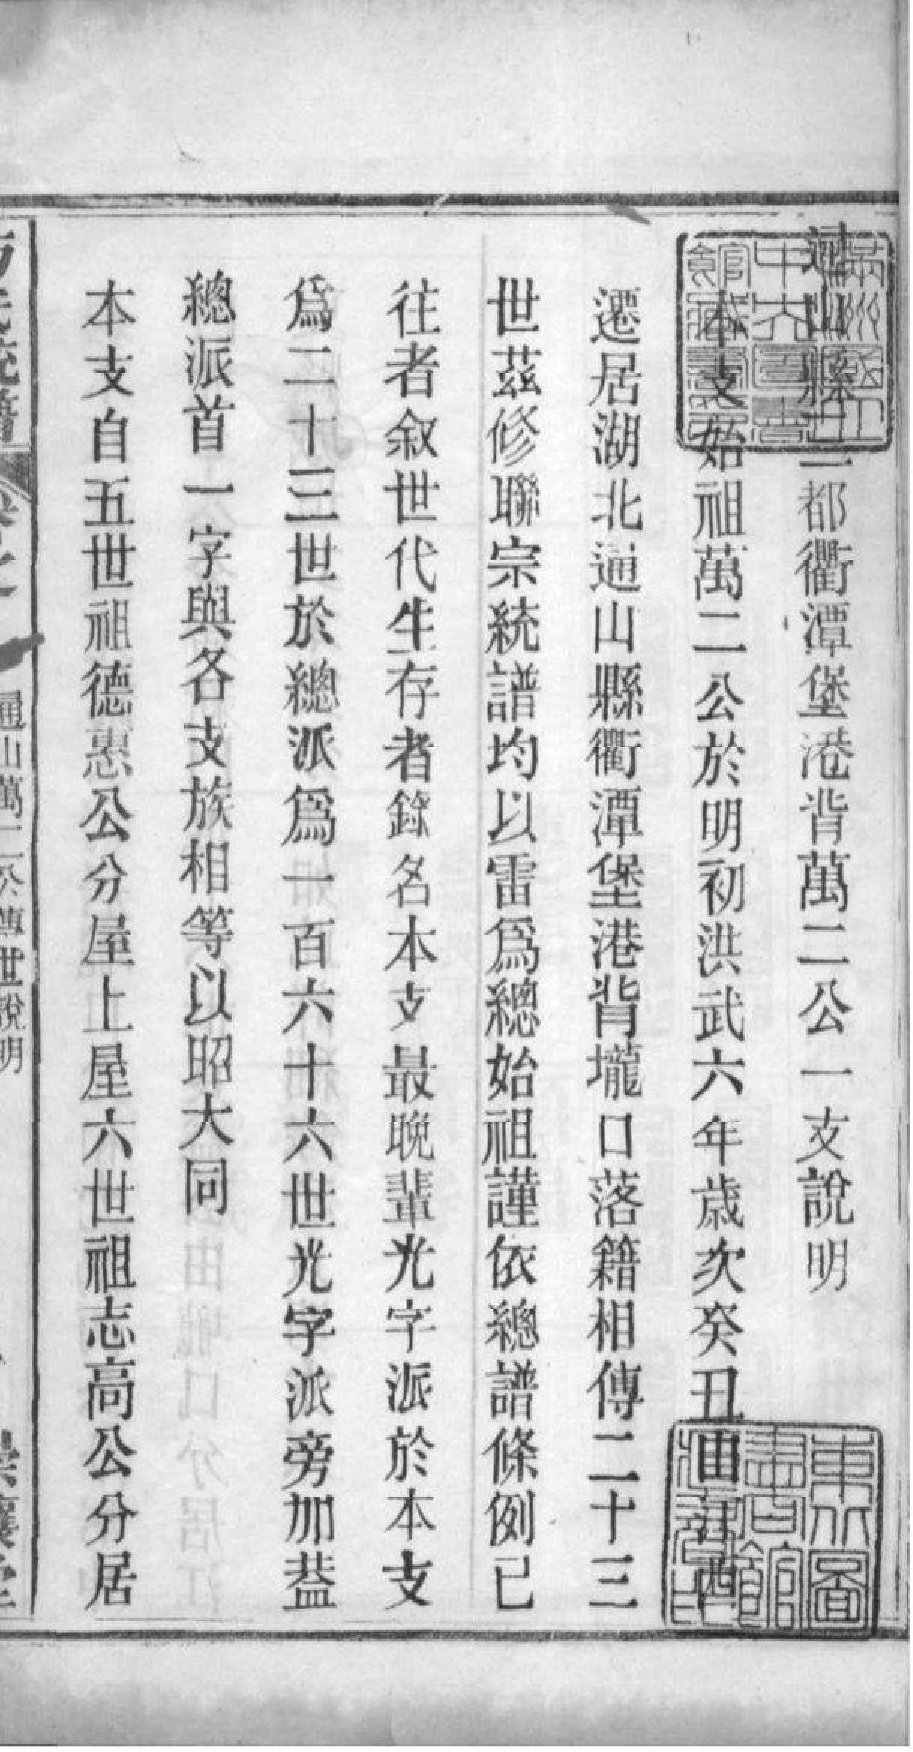 通山縣二都衢潭堡港背萬二公一支說明
本支始祖萬二公於明初洪武六年歲次癸丑由江西
遷居湖北通山縣衢潭堡港背壠口落籍相傳二十三
世茲修聯宗統譜均以雷爲總始祖謹依總譜條例已
往者叙世代生存者錄名本支最晚輩光字派於本支
爲二十三世於總派爲一百六十六世光字派旁加益
總派首一字與各支族相等以昭大同
本支自五世祖德惠公分屋上屋六世祖志高公分居
方氏統譜
卷之一
通山萬二公傳世說明